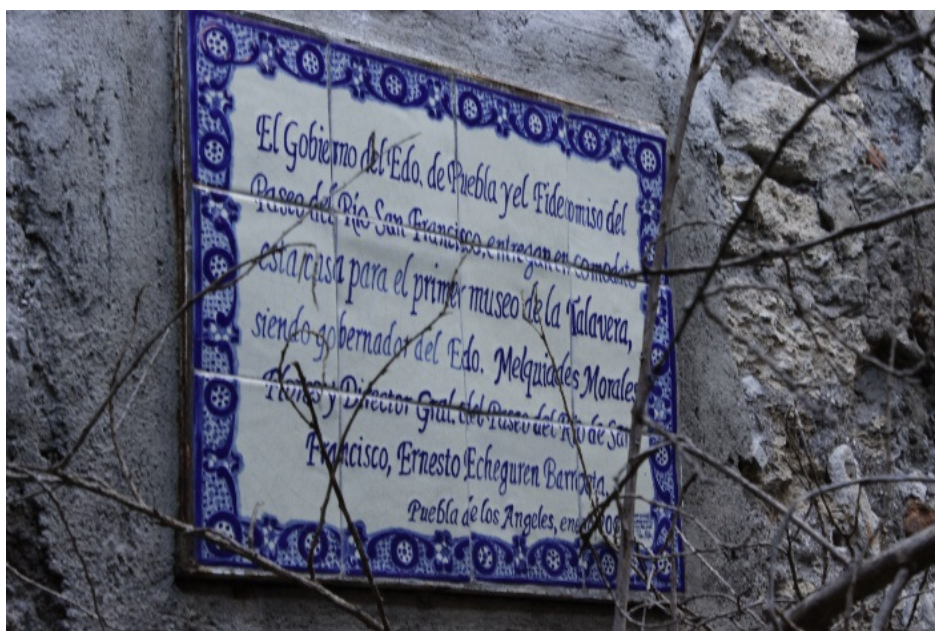 El Gobierno del Edo. de Puebla y el Fideicomiso del
Paseo del Río San Francisco, entregan en comodato
esta casa para el primer museo de la Talavera,
siendo gobernador del Edo. Melquiades Morales
Flores y Director Gral. del Paseo del Río de San
Francisco, Ernesto Echeguren
Puebla de los Angeles,